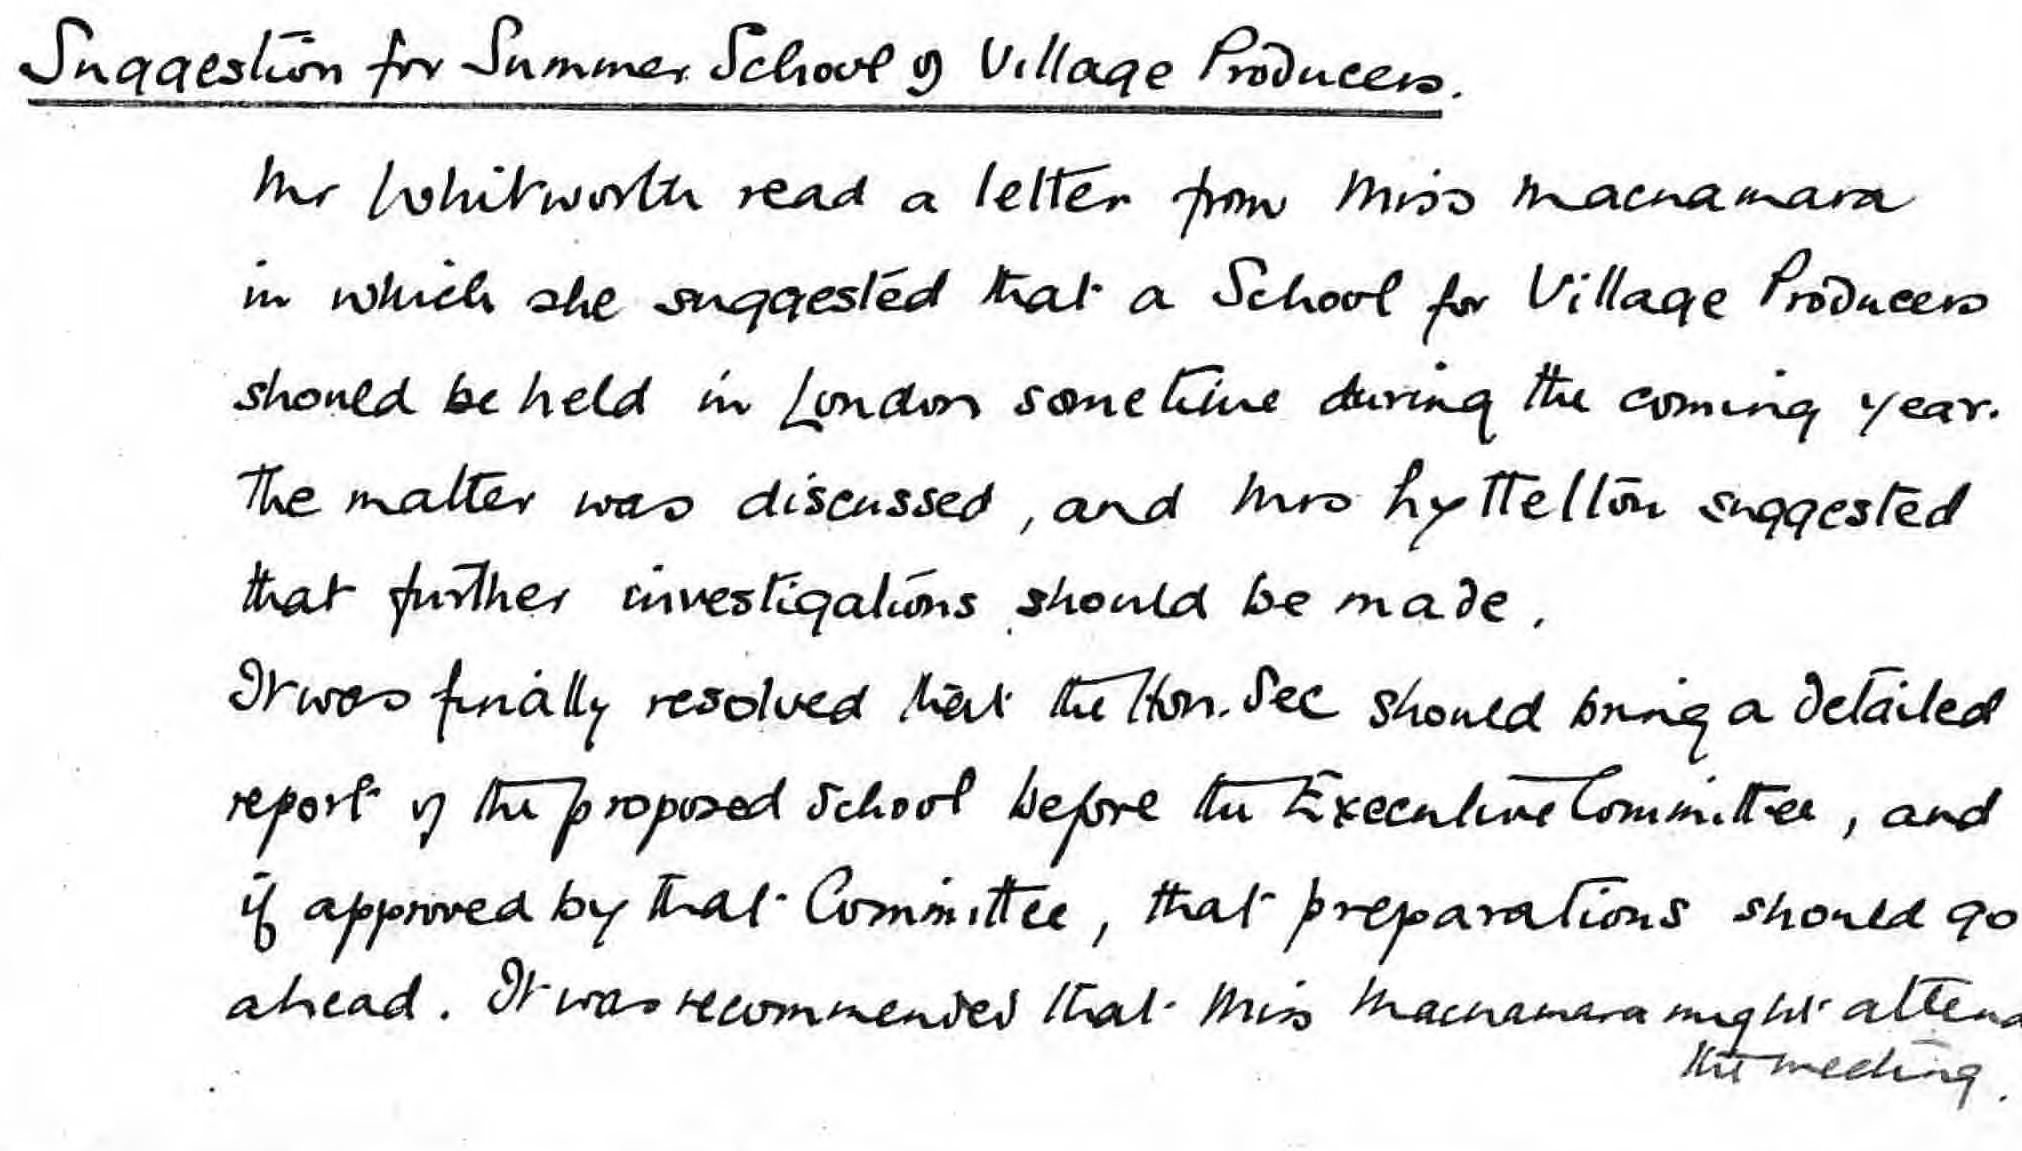 Suggestion for Summer School of Village Producers.
Mr Whitworth read a letter from Miss Macnamara
in which she suggested that a School for Village Producers
should be held in London sometime during the coming year.
The matter was discussed, and Mrs Lyttelton suggested
that further investigations should be made.
It was finally resolved that the Hon. Sec should bring a detailed
report of the proposed School before the Executive Committee, and
if approved by that Committee, that preparations should go
ahead. It was recommended that Miss Macnamara might attend
the meeting.